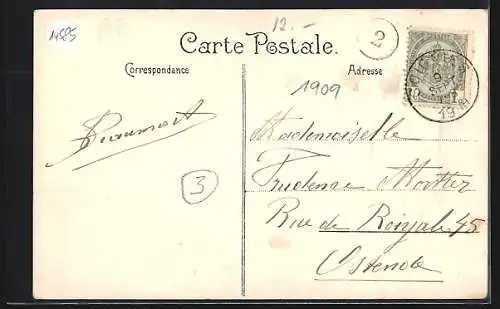 14585
12.-
2
Carte Postale.
Correspondance
Adresse
1909
9
19
3
Mademoiselle
Prudence Mortier
Rue de Royale 45
Ostende